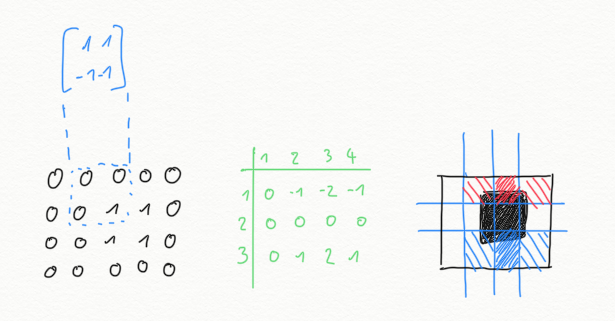 1 1
-1 -1
0 0 0 0 0
0 0 1 1 0
0 0 1 1 0
0 0 0 0 0
1 2 3 4
1 0 -1 -2 -1
2 0 0 0 0
3 0 1 2 1